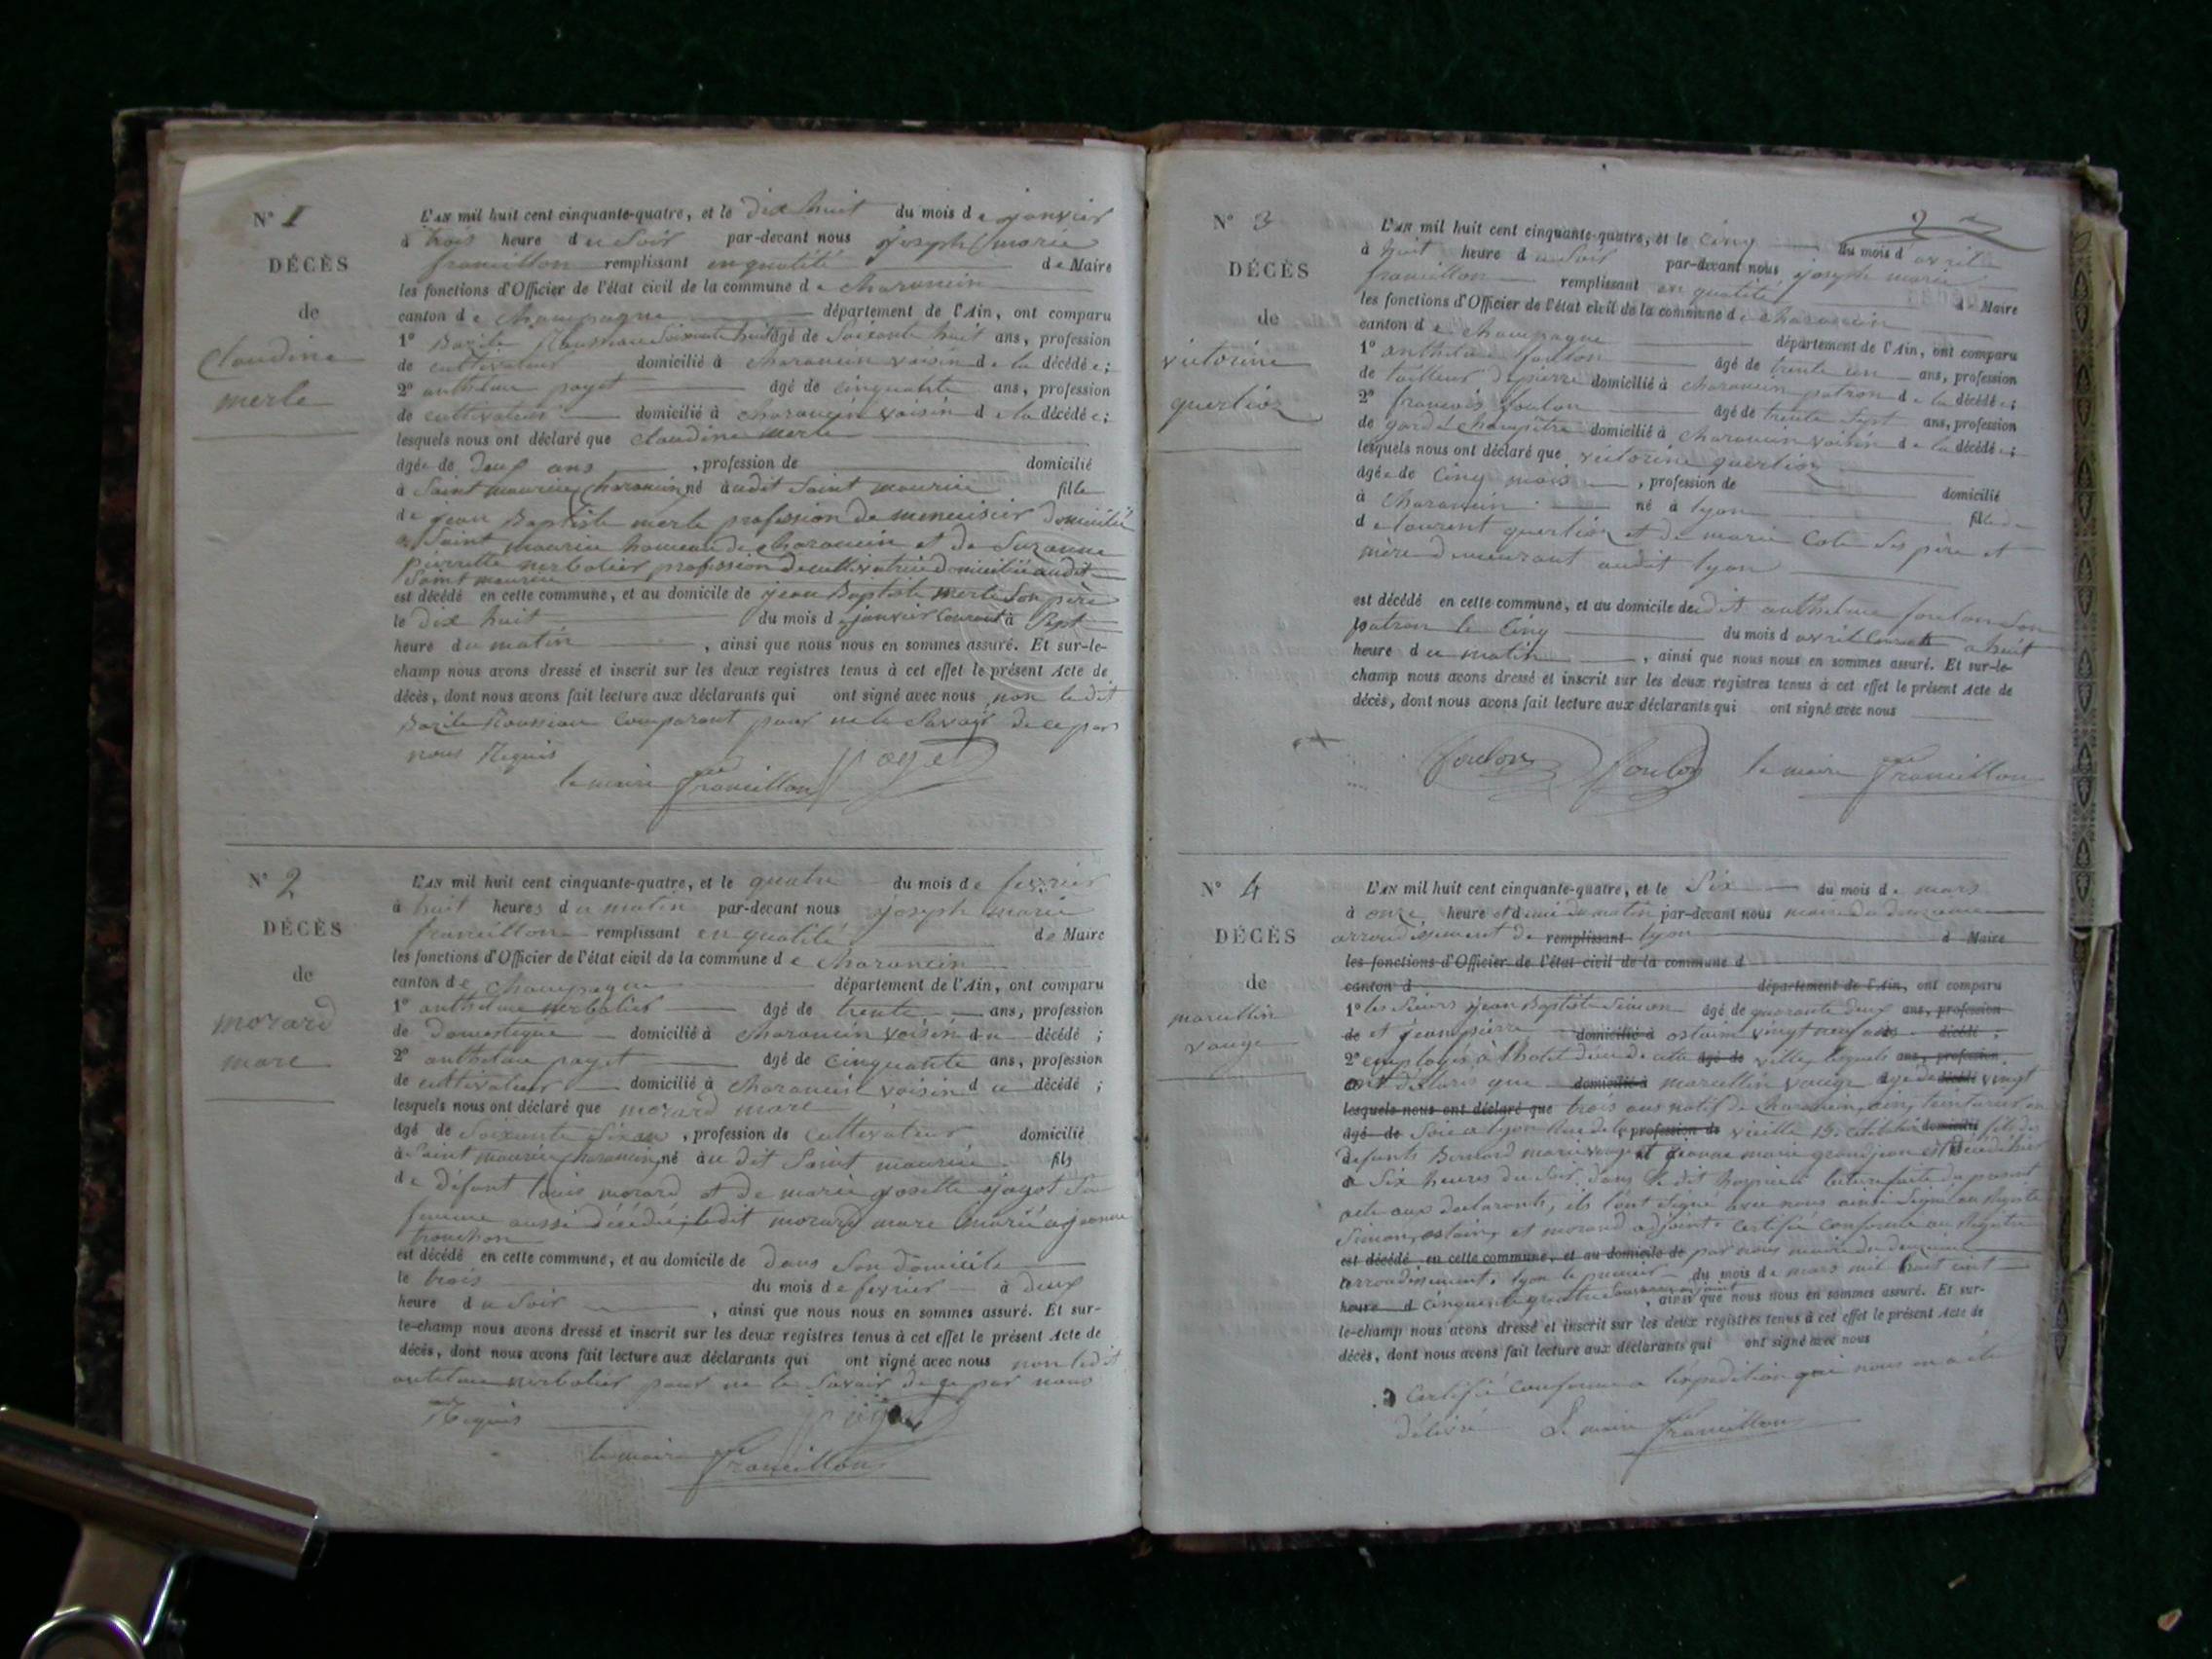 N° 1
DÉCÈS
de
Claudine
merle
L'AN mil huit cent cinquante-quatre, et le dix huit du mois de janvier
à trois heure du soir par-devant nous joseph marie
francillon remplissant en qualité de Maire
les fonctions d'Officier de l'état civil de la commune de charancin
canton de champagne département de l'Ain, ont comparu
1° Bazile Rousseau agé de soixante huit ans, profession
de cultivateur domicilié à charancin voisin de la décédée;
2° anthelme payet âgé de cinquante ans, profession
de cultivateur domicilié à charancin voisin de la décédée;
lesquels nous ont déclaré que claudine merle
agée de deux ans, profession de domicilié
à Saint maurice charancin né audit Saint maurice fille
de jean Baptiste merle profession de menuisier domicilié
a Saint maurice hameau de charancin et de Suzanne
pierrette verbolier profession de cultivatrice domiciliée audit
Saint maurice
est décédé en cette commune, et au domicile de jean Baptiste merle son père
le dix huit du mois de janvier courant à sept
heure du matin, ainsi que nous nous en sommes assuré. Et sur-le-
champ nous avons dressé et inscrit sur les deux registres tenus à cet effet le présent Acte de
décès, dont nous avons fait lecture aux déclarants qui ont signé avec nous non le dit
Bazile Rousseau comparant pour ne le savoir de ce par
nous Requis
le maire francillon payet
N° 2
DÉCÈS
de
morard
marc
L'AN mil huit cent cinquante-quatre, et le quatre du mois de fevrier
à huit heures du matin par-devant nous joseph marie
francillon remplissant en qualité de Maire
les fonctions d'Officier de l'état civil de la commune de charancin
canton de champagne département de l'Ain, ont comparu
1° anthelme verbolier âgé de trente ans, profession
de domestique domicilié à charancin voisin du décédé;
2° anthelme payet âgé de cinquante ans, profession
de cultivateur domicilié à charancin voisin du décédé;
lesquels nous ont déclaré que morard marc
âgé de soixante six ans, profession de cultivateur domicilié
à Saint maurice charancin né au dit Saint maurice fils
de défunt louis morard et de marie josette jayot sa
femme aussi décédée, ledit morard marc marié a jeanne
est décédé en cette commune, et au domicile de dans son domicile
le trois du mois de fevrier à deux
heure du soir, ainsi que nous nous en sommes assuré. Et sur-
le-champ nous avons dressé et inscrit sur les deux registres tenus à cet effet le présent Acte de
décès, dont nous avons fait lecture aux déclarants qui ont signé avec nous non ledit
antelme verbolier pour ne le savoir de ce par nous
Requis payet
le maire francillon
2
N° 3
DÉCÈS
de
victorine
querlioz
L'AN mil huit cent cinquante-quatre, et le cinq du mois d'avril
à huit heure du soir par-devant nous joseph marie
francillon remplissant en qualité d Maire
les fonctions d'Officier de l'état civil de la commune de charancin
canton de champagne département de l'Ain, ont comparu
1° anthelme foulon âgé de trente un ans, profession
de tailleur de pierre domicilié à charancin patron de la décédée;
2° francois foulon âgé de trente sept ans, profession
de garde champêtre domicilié à charancin voisin de la décédée;
lesquels nous ont déclaré que victorine querlioz
agée de cinq mois, profession de domicilié
à charancin né à lyon fille de
de laurent querlioz et de marie cote ses père et
mère demeurant audit lyon
est décédé en cette commune, et au domicile dudit anthelme foulon son
patron le cinq du mois d'avril courant à huit
heure du matin, ainsi que nous nous en sommes assuré. Et sur-le-
champ nous avons dressé et inscrit sur les deux registres tenus à cet effet le présent Acte de
décès, dont nous avons fait lecture aux déclarants qui ont signé avec nous
foulon foulon le maire francillon
N° 4
DÉCÈS
de
marcellin
vauge
L'AN mil huit cent cinquante-quatre, et le six du mois de mars
à onze heure et demi du matin par-devant nous maire du deuxieme
arrondissement de remplissant lyon d Maire
les fonctions d'Officier de l'état civil de la commune d
canton d département de l'Ain, ont comparu
1° les sieurs jean Baptiste Simon âgé de quarante deux ans, profession
de et jean pierre domicilié à ostaim vingt neuf ans décédé;
2° employés à l'hotel dieu de cette âgé de ville, lesquels ans, profession
ont déclaré que domicilié à marcellin vauge agé de décédé vingt
lesquels nous ont déclaré que trois ans natif de charancin, ain, teinturier en
âgé de soie a lyon Rue de la profession de vieille 13 célibataire domicilié fils de
defunts Bernard marie vauge et jeanne marie grandjean est décédé hier
a six heures du soir dans le dit hospice lecture faite du present
acte aux declarants, ils l'ont signé avec nous ainsi signé au registre
Simon, ostaim, et morand adjoint. Certifié conforme au Registre
est décédé en cette commune, et au domicile de par nous maire du deuxieme
arrondissement. lyon le premier du mois de mars mil huit cent
heure d cinquante quatre, ainsi que nous nous en sommes assuré. Et sur-
le-champ nous avons dressé et inscrit sur les deux registres tenus à cet effet le présent Acte de
décès, dont nous avons fait lecture aux déclarants qui ont signé avec nous
certifié conforme a l'expédition qui nous en a été
délivré Le maire francillon